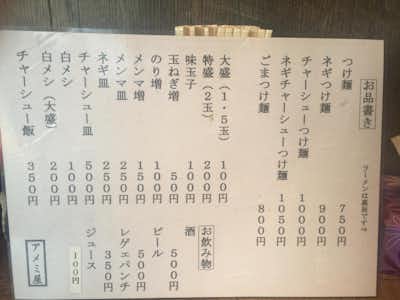 お品書き
ラーメンは裏面です→
つけ麺 750円
ネギつけ麺 900円
チャーシューつけ麺 1000円
ネギチャーシューつけ麺 1050円
ごまつけ麺 800円
大盛（1．5玉） 100円
特盛（2玉） 200円
味玉子 100円
玉ねぎ増 50円
のり増 100円
メンマ増 150円
メンマ皿 250円
ネギ皿 250円
チャーシュー皿 500円
白メシ 100円
白メシ（大盛） 200円
チャーシュー飯 350円
お飲み物
酒 500円
ビール 500円
レゲエパンチ 350円
ジュース 100円
アメミ屋